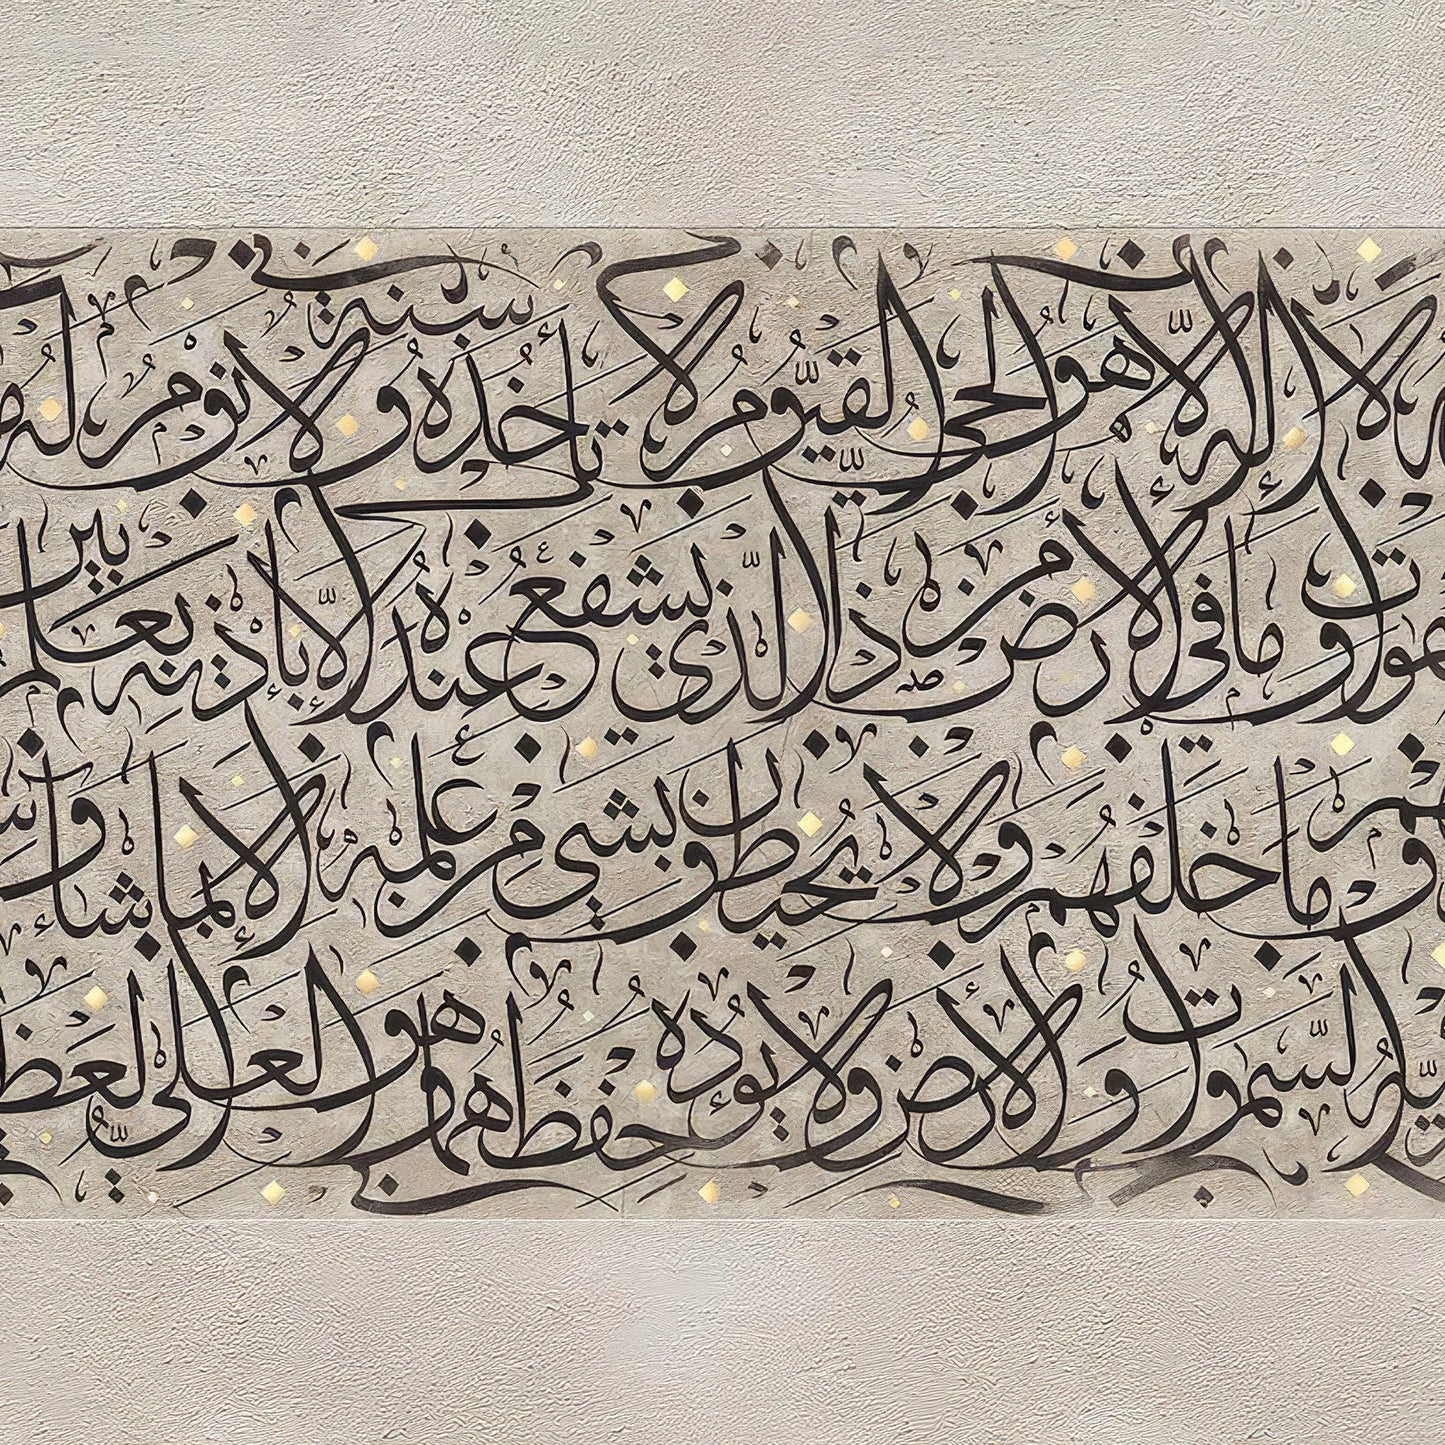 لا إله إلا هو الحي القيوم لا تأخذه سنة ولا نوم له
وما في الأرض من ذا الذي يشفع عنده إلا بإذنه يعلم بين
وما خلفهم ولا يحيطون بشيء من علمه إلا بما شاء
السموات والأرض ولا يؤده حفظهما وهو العلي